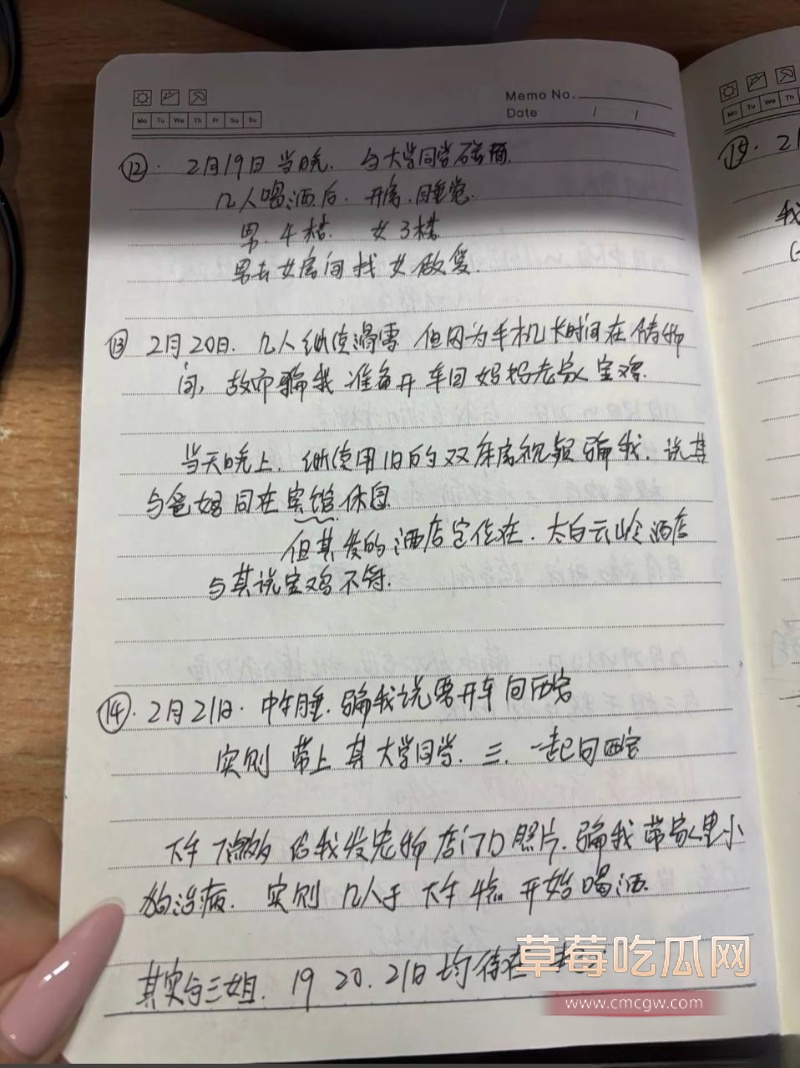 Memo No.
Date / /
Mo Tu We Th Fr Sa Su
⑫. 2月19日当晚. 与大学同学碰面.
几人喝酒后. 开房. 睡觉.
男. 4楼. 女3楼
男去女房间找女做爱.
⑬ 2月20日. 几人继续滑雪 但因为手机长时间在储物
间, 故而骗我准备开车回妈妈老家宝鸡.
当天晚上. 继续用旧的双床房视频骗我. 说其
与爸妈同在宾馆休息
但其发的酒店定位在. 太白云岭酒店
与其说宝鸡不符.
⑭. 2月21日. 中午睡. 骗我说要开车回西安
实则 带上其大学同学. 三. 一起回西安
下午7点多给我发宠物店门口照片. 骗我带家里小
狗治病. 实则几人于下午4点开始喝酒.
其实与三姐. 19 20. 21日均待在一起
⑮ 21
我
Mo Tu We Th
草莓吃瓜网
www.cmcgw.com